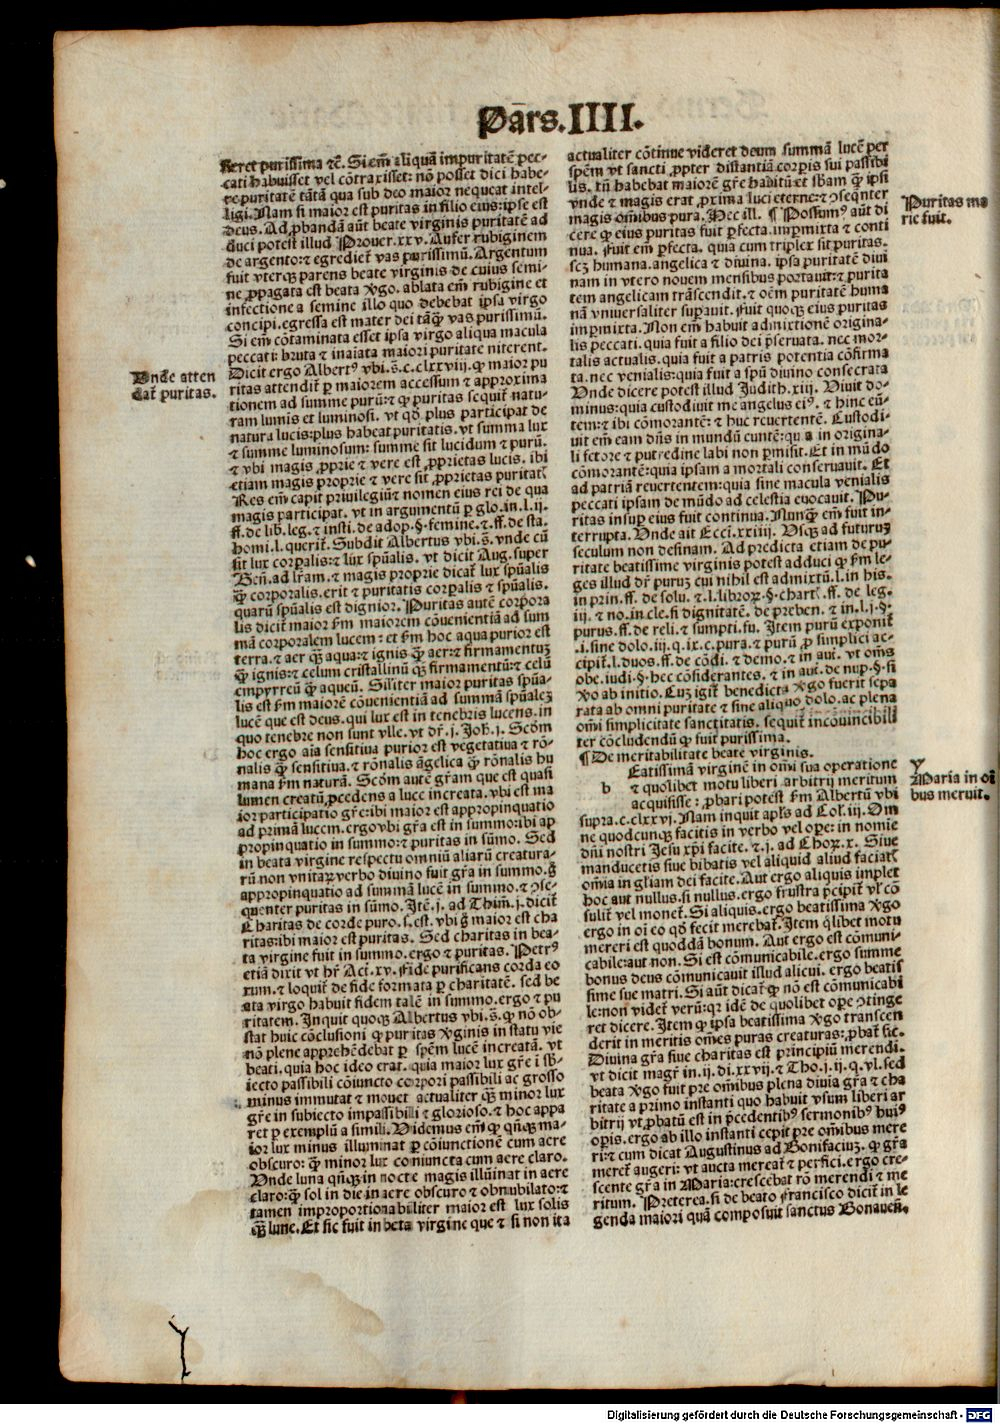 Pars.IIII.
neret purissima ⁊c̃. Si em̃ aliquã impuritatẽ pec-
cati habuisset vel cõtraxisset: nõ posset dici habe-
re puritatẽ tãtã qua sub deo maior nequeat intel-
ligi. Nam si maior est puritas in filio eius: ipse est
deus. Ad ꝓbandã aũt beate virginis puritatẽ ad
duci potest illud Prouer.xxv. Aufer rubiginem
de argento: ⁊ egrediet̃ vas purissimũ. Argentum
fuit vterqꝫ parens beate virginis de cuius semi-
ne ꝓpagata est beata ꝟgo. ablata em̃ rubigine et
infectione a semine illo quo debebat ipsa virgo
concipi. egressa est mater dei tãꝙ̃ vas purissimũ.
Si em̃ cõtaminata esset ipsa virgo aliqua macula
peccati: bruta ⁊ inaiata maiori puritate niterent.
Dicit ergo Albertꝰ vbi.s̃.c.clxxviij. ꝙ maior pu
ritas attendit̃ ꝑ maiorem accessum ⁊ approxima
tionem ad summe purũ: ⁊ ꝙ puritas sequit̃ natu-
ram lumis et luminosi. vt qd̃ plus participat de
natura lucis: plus habeat puritatis. vt summa lux
⁊ summe luminosum: summe sit lucidum ⁊ purũ.
⁊ vbi magis ꝓprie ⁊ vere est ꝓprietas lucis. ibi
etiam magis proprie ⁊ vere sit ꝓprietas puritat̃
Res em̃ capit priuilegiũ ⁊ nomen eius rei de qua
magis participat. vt in argumentũ ꝑ glo.in.l.ij.
ff.de lib.leg.⁊ insti.de adop.§.femine.⁊.ff.de sta.
homi.l.querit̃. Subdit Albertus vbi.s̃.vnde cũ
sit lux corꝑalis: ⁊ lux spũalis. vt dicit Aug.super
Beñ.ad lr̃am.⁊ magis proprie dicat̃ lux spũalis
ꝙ̃ corporalis.erit ⁊ puritatis corꝑalis ⁊ spũalis.
quarũ spũalis est dignior. Puritas autẽ corpora
lis dicit̃ maior ẽm maiorem cõuenientiã ad sum
mã corporalem lucem: et ẽm hoc aqua purior est
terra.⁊ aer ꝙ̃ aqua: ⁊ ignis ꝙ̃ aer: ⁊ firmamentuꝫ
ꝙ̃ ignis: ⁊ celum cristallinũ ꝙ̃ firmamentũ: ⁊ celũ
empyrreũ ꝙ̃ aqueũ. Similiter maior puritas spũa-
lis est ẽm maiorẽ cõuenientiã ad summã spũaleꝫ
lucẽ que est deus. qui lux est in tenebris lucens.in
quo tenebre non sunt vlle. vt dr̃.j. Joh̃.j. Scd̃m
hoc ergo aia sensitiua purior est vegetatiua ⁊ rõ-
nalis ꝙ̃ sensitiua.⁊ rõnalis ãgelica ꝙ̃ rõnalis hu
mana ẽm naturã. Scd̃m autẽ gr̃am que est quasi
lumen creatũ ꝓcedens a luce increata. vbi est ma
ior participatio gr̃e: ibi maior est appropinquatio
ad primã lucem. ergo vbi gr̃a est in summo: ibi ap
propinquatio in summo: ⁊ puritas in sũmo. Sed
in beata virgine respectu omniũ aliarũ creatura-
rũ non vnitaꝝ verbo diuino fuit gr̃a in summo.g̃
appropinquatio ad summã lucẽ in summo.⁊ ꝯse-
quenter puritas in sũmo. Itẽ.j. ad Thim̃.j. dicit̃
Charitas de corde puro.s.est. vbi g̃ maior est cha
ritas: ibi maior est puritas. Sed charitas in bea-
ta virgine fuit in summo. ergo ⁊ puritas. Petrꝰ
etiã dixit vt hr̃ Act̃.xv. Fide purificans corda eo
rum.⁊ loquit̃ de fide formata ꝑ charitatẽ. sed be
ata virgo habuit fidem talẽ in summo. ergo ⁊ pu
ritatem. Inquit quoqꝫ Albertus vbi.s̃.ꝙ nõ ob-
stat huic cõclusioni ꝙ puritas ꝟginis in statu vie
nõ plene apprehẽdebat ꝑ spẽm lucẽ increatã. vt
beati. quia hoc ideo erat. quia maior lux gr̃e ĩ sb̃-
iecto passibili cõiuncto corpori passibili ac grosso
minus immutat ⁊ mouet actualiter ꝙ̃ minor lux
gr̃e in subiecto impassibili ⁊ glorioso.⁊ hoc appa
ret ꝑ exemplũ a simili. Videmus em̃ ꝙ qñqꝫ ma-
ior lux minus illuminat ꝑ cõiunctionẽ cum aere
obscuro: ꝙ̃ minor lux coniuncta cum aere claro.
Vnde luna qñqꝫ in nocte magis illũinat in aere
claro: ꝙ̃ sol in die in aere obscuro ⁊ obnubilato: ⁊
tamen improportionabiliter maior est lux solis
ꝙ̃ lune. Et sic fuit in beta virgine que ⁊ si non ita
Vnde atten
dat̃ puritas.
actualiter cõtinue videret deum summã lucẽ per
spẽm vt sancti ꝓpter distantiã corꝑis sui passibi
lis. tñ habebat maiorẽ gr̃e habitũ et sb̃am ꝙ̃ ipsi
vnde ⁊ magis erat ꝓxima luci eterne: ⁊ ꝯseqnter
magis omibus pura. Hec ill. ¶ Possumꝰ aũt di
cere ꝙ eius puritas fuit ꝑfecta. impermixta ⁊ conti
nua. Fuit em̃ ꝑfecta. quia cum triplex sit puritas.
scꝫ humana. angelica ⁊ diuina. ipsa puritatẽ diui
nam in vtero nouem mensibus portauit: ⁊ purita
tem angelicam trãscendit.⁊ oẽm puritatẽ huma
nã vniuersaliter suꝑauit. Fuit quoqꝫ eius puritas
impermixta. Non em̃ habuit admixtionẽ origina-
lis peccati. quia fuit a filio dei p̃seruata. nec mor-
talis actualis. quia fuit a patris potentia cõfirma
ta. nec venialis: quia fuit a spũ diuino consecrata
Vnde dicere potest illud Judith.xiij. Viuit do-
minus: quia custodiuit me angelus eiꝰ.⁊ hinc eũ-
tem: ⁊ ibi cõmorantẽ: ⁊ huc reuertentẽ. Custodi-
uit em̃ eam dñs in mundũ euntẽ: quia in origina-
li fetore ⁊ putredine labi non ꝑmisit. Et in mũdo
cõmorantẽ: quia ipsam a mortali conseruauit. Et
ad patriã reuertentem: quia sine macula venialis
peccati ipsam de mũdo ad celestia euocauit. Pu-
ritas insuꝑ eius fuit continua. Nunꝙ̃ em̃ fuit in-
terrupta. Vnde ait Ecci.xxiiij. Vsqꝫ ad futuruꝫ
seculum non desinam. Ad predicta etiam de pu-
ritate beatissime virginis potest adduci ꝙ ẽm le-
ges illud dr̃ puruꝫ cui nihil est admixtũ.l.in his.
in prin.ff.de solu.⁊.l.libroꝝ.§.chart̃.ff.de leg.
iij.⁊ no.in cle.si dignitatẽ.de preben.⁊ in.l.j.§.
purus.ff.de reli.⁊ sumpti.fu. Item purũ exponit̃
.i.sine dolo.iij.q.ix.c.pura.⁊ purũ ꝓ simplici ac-
cipit̃.l.duos.ff.de cõdi.⁊ demo.⁊ in aut.vt om̃s
obe.iudi.§.hec cõsiderantes.⁊ in aut.de nup.§.si
ꝟo ab initio. Cuꝫ igit̃ benedicta ꝟgo fuerit sepa
rata ab omni puritate ⁊ sine aliquo dolo.ac plena
om̃i simplicitate sanctitatis. sequit̃ incõuincibili
ter cõcludendũ ꝙ fuit purissima.
¶ De meritabilitate beate virginis.
b Eatissimã virginẽ in om̃i sua operatione
⁊ quolibet motu liberi arbitrij meritum
acquisisse: ꝓbari potest ẽm Albertũ vbi
supra.c.clxxvj. Nam inquit apl̃s ad Col̃.iij. Om
ne quodcunqꝫ facitis in verbo vel oꝑe: in nomie
dñi nostri Jesu xp̃i facite.⁊.j. ad Choꝝ.x. Siue
manducetis siue bibatis vel aliquid aliud faciat̃
om̃ia in gl̃iam dei facite. Aut ergo aliquis implet
hoc aut nullus. si nullus. ergo frustra p̃cipit̃ vl̃ cõ
sulit̃ vel monet̃. Si aliquis. ergo beatissima ꝟgo
ergo in oi eo qd̃ fecit merebat̃. Item qĩlibet motu
mereri est quoddã bonum. Aut ergo est cõmuni-
cabile: aut non. Si est cõmunicabile. ergo summe
bonus deus cõmunicauit illud alicui. ergo beatis
sime sue matri. Si aũt dicat̃ ꝙ nõ est cõmunicabi
le: non videt̃ verũ: qr̃ idẽ de quolibet oꝑe ꝯtinge
ret dicere. Item ꝙ ipsa beatissima ꝟgo transcen
derit in meritis om̃es puras creaturas: ꝓbat̃ sic.
Diuina gr̃a siue charitas est principiũ merendi.
vt dicit magr̃ in.ij.di.xxvij.⁊ Tho.j.ij.q.vl.sed
beata ꝟgo fuit pre om̃ibus plena diuia gr̃a ⁊ cha
ritate a primo instanti quo habuit vsum liberi ar
bitrij vt ꝓbatũ est in p̃cedentibꝰ sermonibꝰ huiꝰ
opis. ergo ab illo instanti cepit pre om̃ibus mere
ri: ⁊ cum dicat Augustinus ad Bonifaciuꝫ. ꝙ gr̃a
meret̃ augeri: vt aucta mereat̃ ⁊ perfici. ergo cre-
scente gr̃a in Maria: crescebat rõ merendi ⁊ me
ritum. Preterea. si de beato Francisco dicit̃ in le
genda maiori quã composuit sanctus Bonaueñ.
Puritas ma
rie fuit.
Y
Maria in oi
bus meruit.
Digitalisierung gefördert durch die Deutsche Forschungsgemeinschaft - DFG